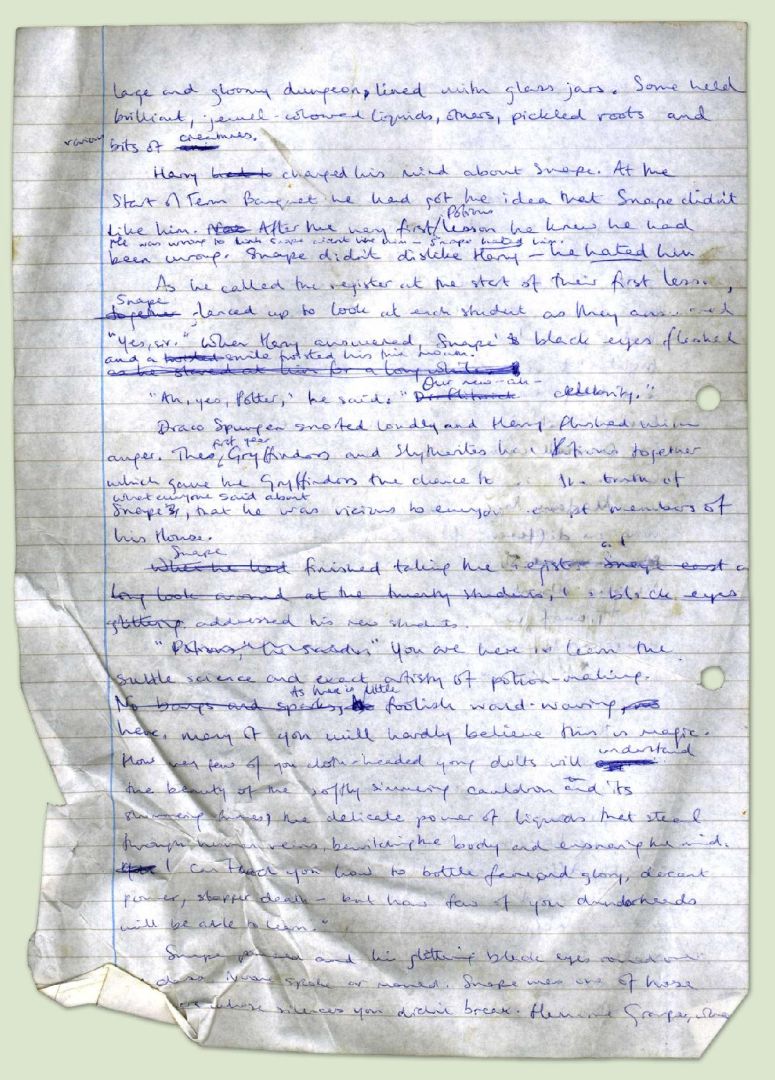 large and gloomy dungeon, lined with glass jars. Some held
brilliant, jewel-coloured liquids, others, pickled roots and
various bits of creatures.
Harry had to changed his mind about Snape. At the
Start of Term Banquet he had got the idea that Snape didn't
like him. After the very first Potions lesson he knew he had
He was wrong to think Snape didn't like him – Snape hated him.
been wrong. Snape didn't dislike Harry – he hated him
As he called the register at the start of their first
Snape
together glanced up to look at each student as they
"Yes, sir." When Harry answered, Snape's black eyes flashed
and a twisted smile twisted his thin mouth.
as he stared at him for a long while
"Ah, yes, Potter," he said. "Our new celebrity."
Draco Spungen snorted loudly and Harry flushed with
anger. The first year Gryffindors and Slytherins had Potions together
which gave the Gryffindors the chance to the truth of
what everyone said about
Snape, that he was vicious to everyone except members of
his House.
Snape
When he had finished taking the register Snape cast a
long look around at the twenty students, his black eyes
glittering. addressed his new students.
"Potions," "You are here to learn the
subtle science and exact artistry of potion-making.
As there is little
No bangs and sparks, foolish wand-waving
here, many of you will hardly believe this is magic.
How very few of you cloth-headed young dolts will understand
the beauty of the softly simmering cauldron and its
shimmering fumes, the delicate power of liquids that steal
through human veins, bewitching the body and ensnaring the mind.
I can teach you how to bottle fame and glory, decant
power, stopper death – but how few of you dunderheads
will be able to learn."
Snape paused and his glittering black eyes roved over
class. No one spoke or moved. Snape was one of those
whose silences you didn't break. Hermione Granger,